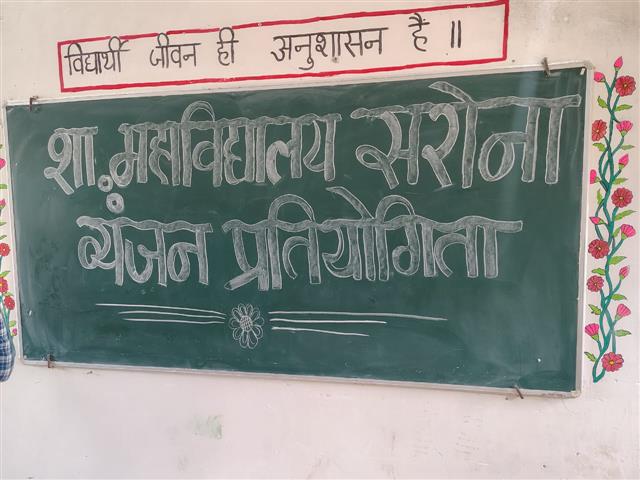 विद्यार्थी जीवन ही अनुशासन हैं ॥
शा. महाविद्यालय सरोना
व्यंजन प्रतियोगिता